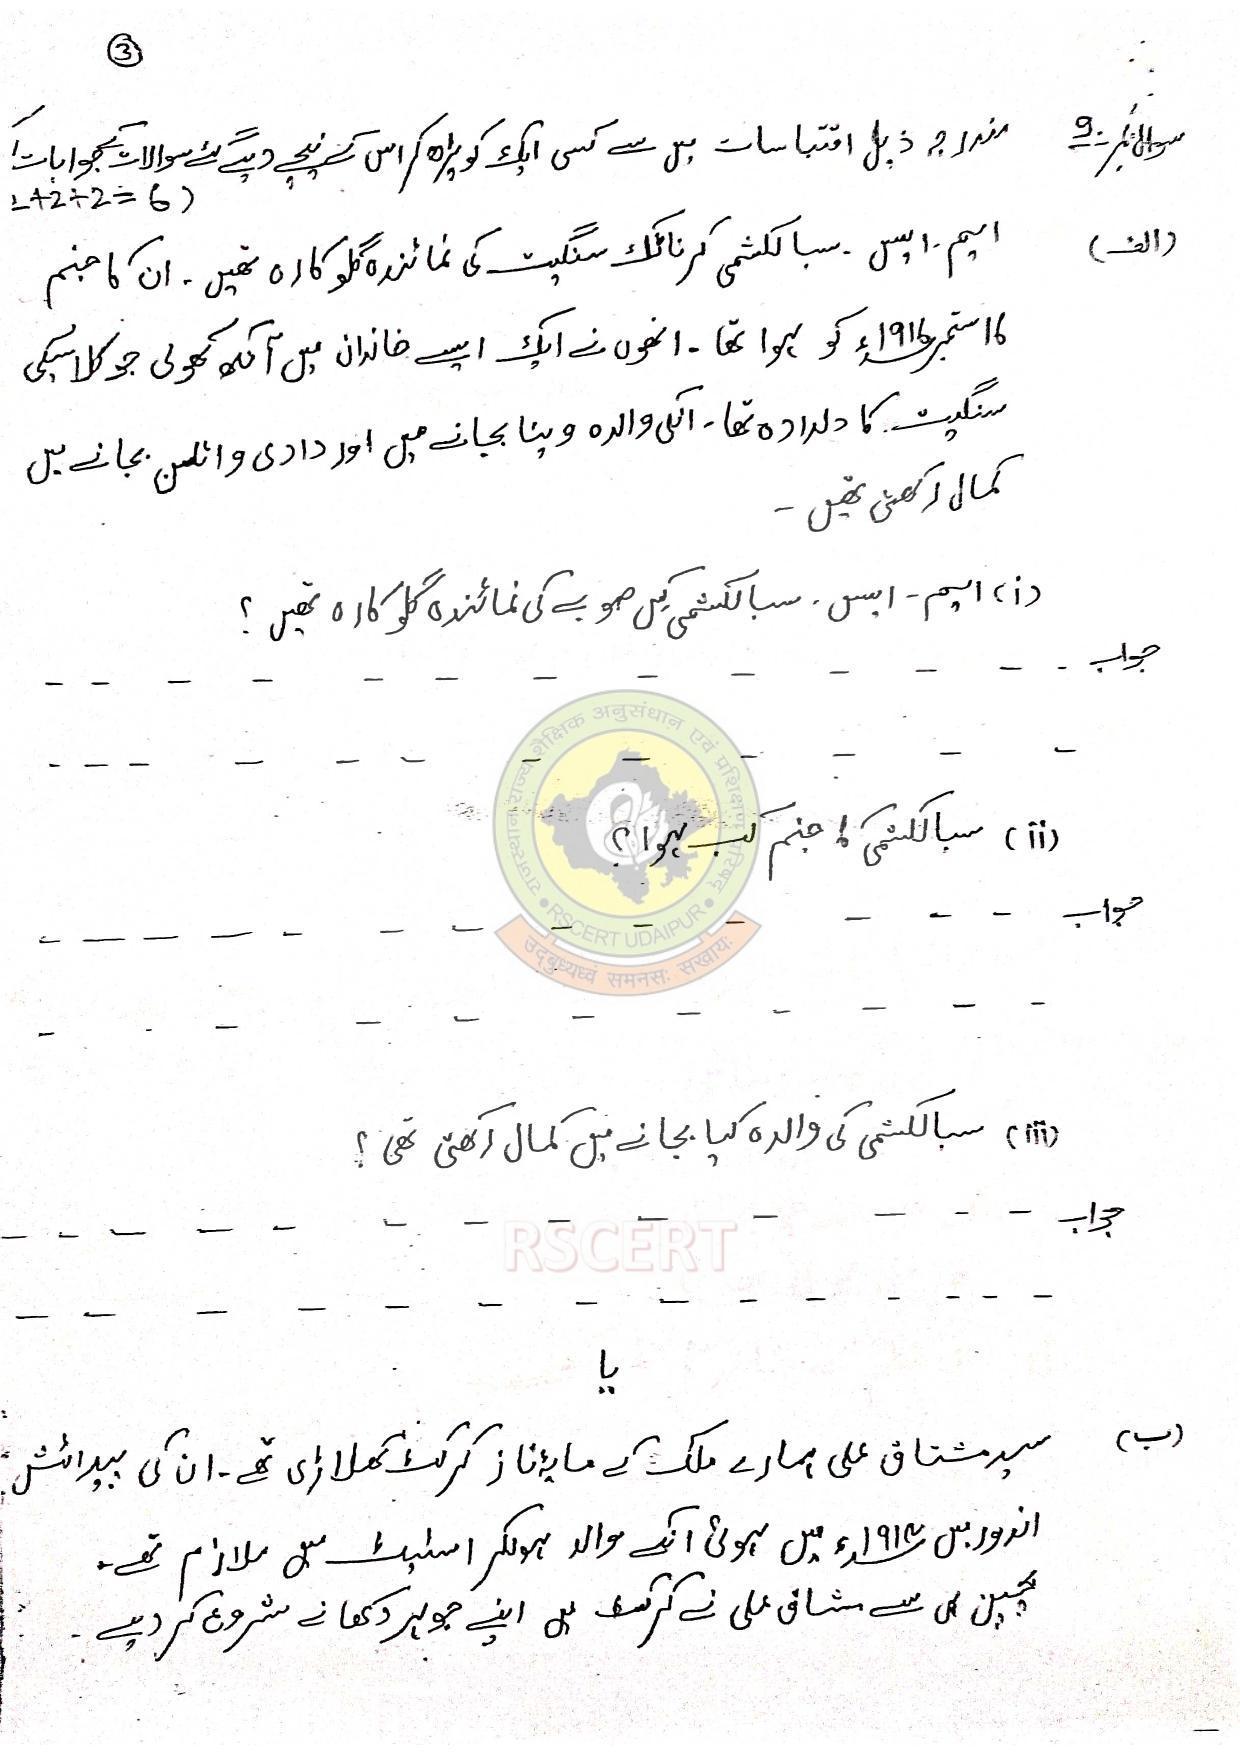 3
سوال نمبر-9 مندرجہ ذیل اقتباسات میں سے کسی ایک کو پڑھ کر اس کے نیچے دیئے گئے سوالات کے جوابات
2+2+2=6)
(الف) ایم-ایس-سبالکشمی کرناٹک سنگیت کی نمائندہ گلوکارہ تھیں۔ ان کا جنم
۱۶ ستمبر ۱۹۱۶ء کو ہوا تھا۔ انھوں نے ایک ایسے خاندان میں آنکھ کھولی جو کلاسیکی
سنگیت کا دلدادہ تھا۔ انکی والدہ وینا بجانے میں اور دادی وائلن بجانے میں
کمال رکھتی تھیں۔
(i) ایم-ایس-سبالکشمی کس صوبے کی نمائندہ گلوکارہ تھیں؟
جواب
(ii) سبالکشمی کا جنم کب ہوا؟
جواب
(iii) سبالکشمی کی والدہ کیا بجانے میں کمال رکھتی تھی؟
جواب
یا
(ب) سید مشتاق علی ہمارے ملک کے مایۂ ناز کرکٹ کھلاڑی تھے۔ ان کی پیدائش
اندور میں ۱۹۱۴ء میں ہوئی انکے والد ہولکر اسٹیٹ میں ملازم تھے۔
بچپن ہی سے مشتاق علی نے کرکٹ میں اپنے جوہر دکھانے شروع کر دیے۔
राजस्थान राज्य शैक्षिक अनुसंधान एवं प्रशिक्षण परिषद्
RSCERT UDAIPUR
उद्बुध्यध्वं समनसः सखायः
RSCERT